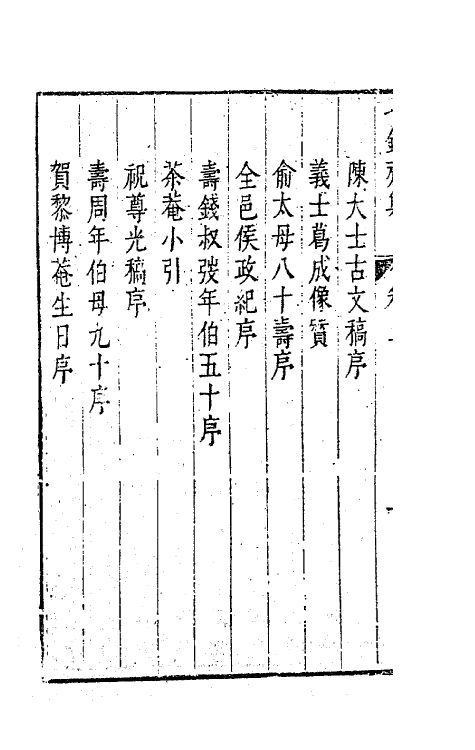 陳大士古文稿序
義士葛成像贊
俞太母八十壽序
全邑侯政紀序
壽錢叔弢年伯五十序
茶菴小引
祝尊光稿序
壽周年伯母九十序
賀黎博菴生日序